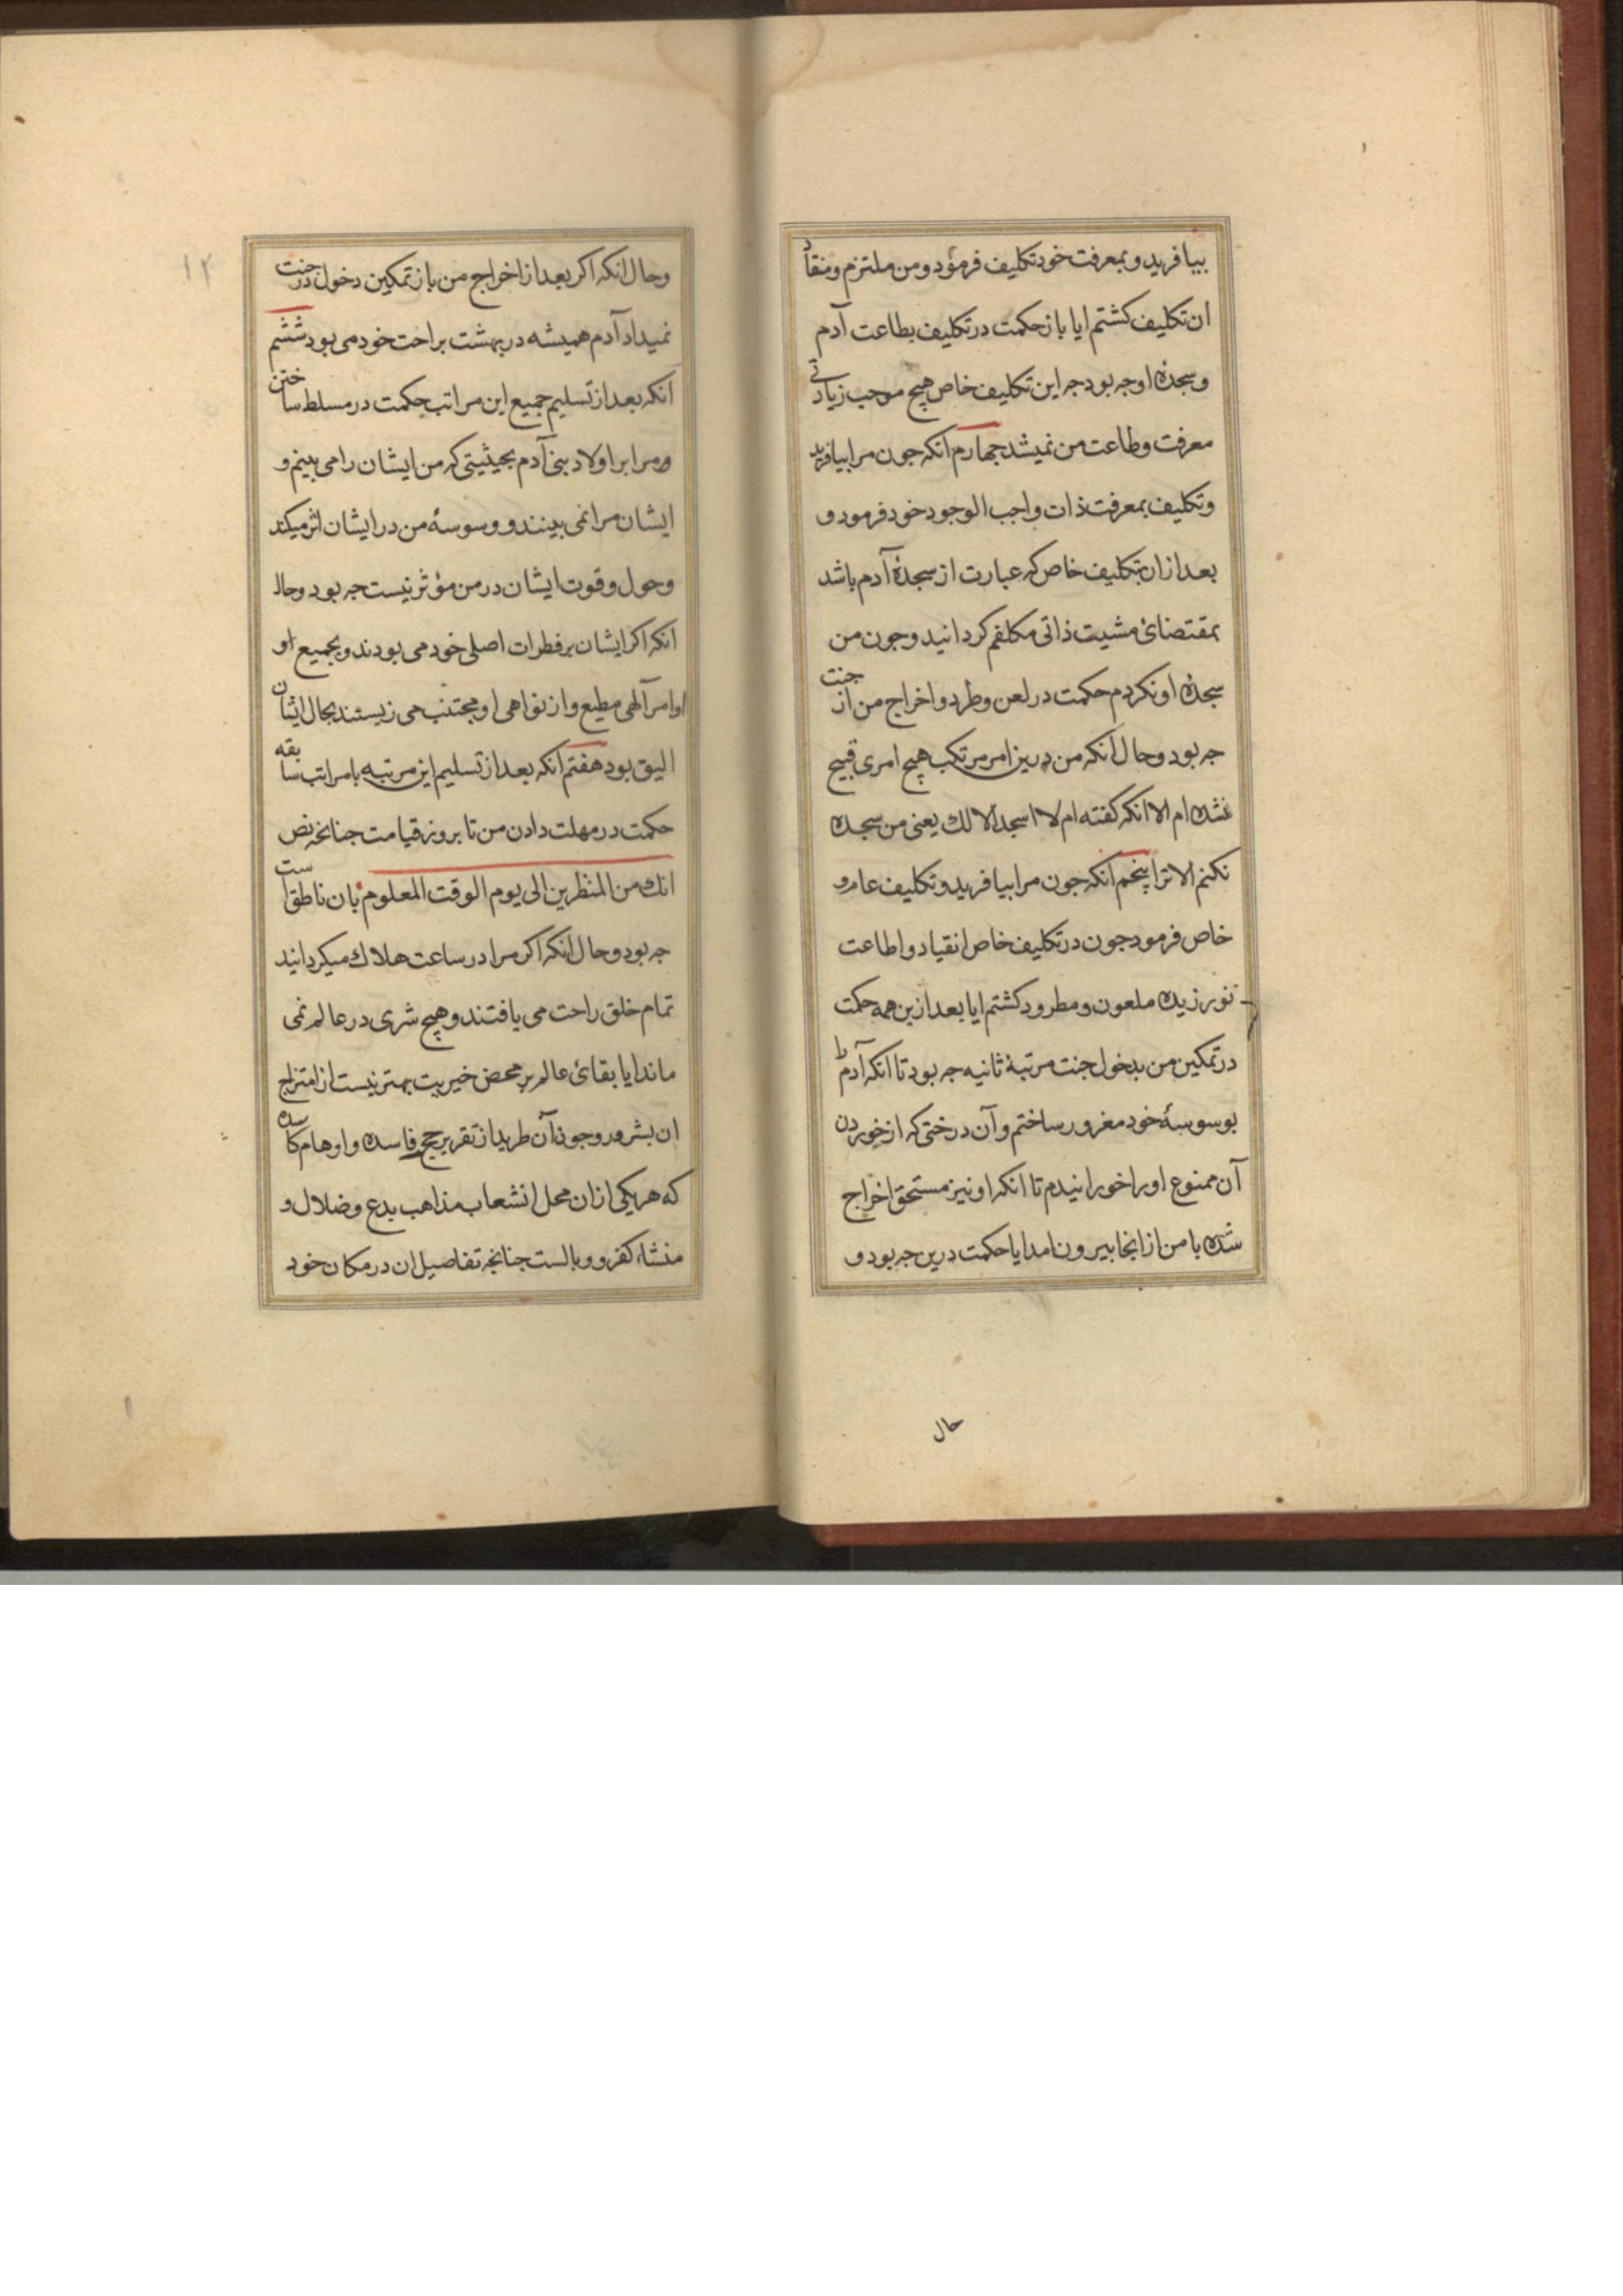 بیافرید و بمعرفت خود تکلیف فرمود و من ملتزم و منقاد
ان تکلیف کشتم ایا باز حکمت در تکلیف بطاعت آدم
و سجدۀ او جه بود جه این تکلیف خاص هیچ موجب زیادتی
معرفت و طاعت من نمیشد جهارم انکه جون مرا بیافرید
و تکلیف بمعرفت ذات واجب الوجود خود فرمود و
بعد از ان بتکلیف خاص که عبارت از سجدۀ آدم باشد
بمقتضای مشیت ذاتی مکلفم کردانید و جون من
سجدۀ او نکردم حکمت در لعن و طرد و اخراج من از جنت
جه بود و حال انکه من درین امر مرتکب هیچ امری قبیح
نشده ام الا انکه کفته ام لا اسجد الا لك یعنی من سجده
نکنم الا ترا پنجم انکه جون مرا بیافرید و تکلیف عام و
خاص فرمود جون در تکلیف خاص انقیاد و اطاعت
نورزیده ملعون و مطرود کشتم ایا بعد ازین همه حکمت
در تمکین من بدخول جنت مرتبۀ ثانیه جه بود تا انکه آدم را
بوسوسۀ خود مغرور ساختم و آن درختی که از خوردن
آن ممنوع او را خورانیدم تا انکه او نیز مستحق اخراج
شده با من از انجا بیرون امد ایا حکمت درین جه بود و
حال
۱۲
و حال انکه اکر بعد از اخراج من باز تمکین دخول در جنت
نمیداد آدم همیشه در بهشت براحت خود می بود ششم
انکه بعد از تسلیم جمیع این مراتب حکمت در مسلط ساختن
و مرا بر اولاد بنی آدم بحیثیتی که من ایشان را می بینم و
ایشان مرا نمی بینند و وسوسۀ من در ایشان اثر میکند
و حول و قوت ایشان در من مؤثر نیست جه بود و حال
انکه اکر ایشان بر فطرات اصلی خود می بودند و بجمیع او
اوامر آلهی مطیع و از نواهی او مجتنب می زیستند بحال ایشان
الیق بود هفتم انکه بعد از تسلیم این مرتبه با مراتب سابقه
حکمت در مهلت دادن من تا بروز قیامت جنانجه نص
انك من المنظرین الی یوم الوقت المعلوم بان ناطق است
جه بود و حال انکه اکر مرا در ساعت هلاك میکردانید
تمام خلق راحت می یافتند و هیچ شری در عالم نمی
ماند ایا بقای عالم بر محض خیریت بهتر نیست از امتزاج
ان بشرور و جون آن طرید از تقریر حجج فاسده و اوهام کاسده
که هر یکی از ان محل انشعاب مذاهب بدع و ضلال و
منشاء کفر و وبالست جنانجه تفاصیل ان در مکان خود